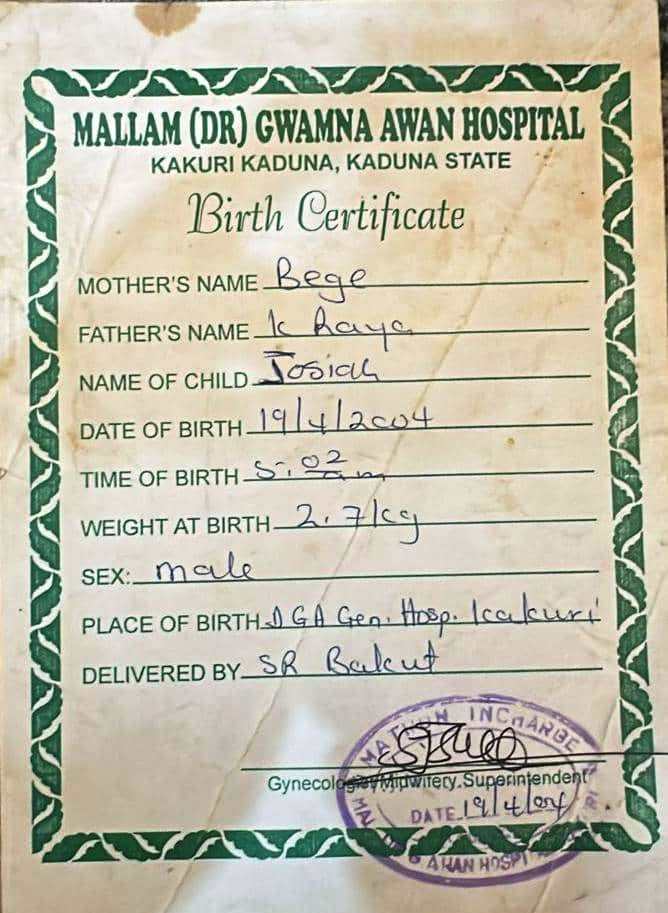 MALLAM (DR) GWAMNA AWAN HOSPITAL
KAKURI KADUNA, KADUNA STATE
Birth Certificate
MOTHER'S NAME Bege
FATHER'S NAME k haya
NAME OF CHILD Josiah
DATE OF BIRTH 19/4/2004
TIME OF BIRTH 5:02 am
WEIGHT AT BIRTH 2.7kg
SEX: male
PLACE OF BIRTH DGA Gen. Hosp. kakuri
DELIVERED BY SR Bakut
MATRON INCHARGE
Gynecologist/Midwifery.Superintendent
DATE 19/4/04
AWAN HOSPI